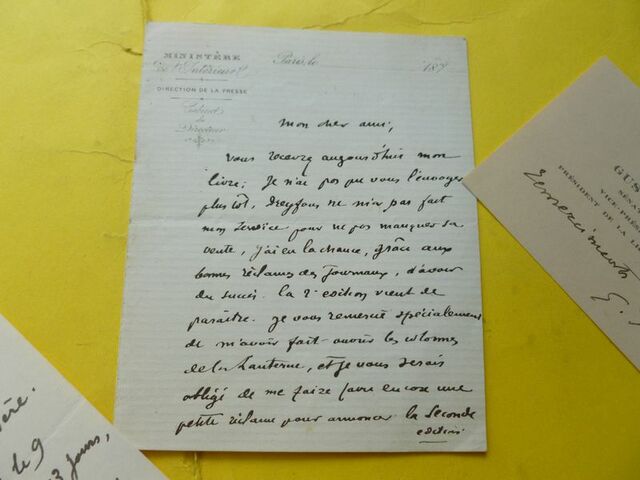 MINISTÈRE
de l'Intérieur
DIRECTION DE LA PRESSE
Cabinet
du
Directeur
Paris, le 187
Mon cher ami,
vous recevez aujourd'hui mon
livre; Je n'ai pas pu vous l'envoyer
plus tôt, Dreyfous ne m'a pas fait
mon service pour ne pas manquer sa
vente, j'ai eu la chance, grâce aux
bonnes réclames des Journaux, d'avoir
du succès. la 2e edition vient de
paraître. je vous remercie spécialement
de m'avoir fait ouvrir les colonnes
de la Lanterne, et je vous serais
obligé de me faire faire encore une
petite réclame pour annoncer la seconde
edition
GUS
SÉNA
VICE PRÉS
PRÉSIDENT DE LA
remerciments
G.
de 9
3 jours,